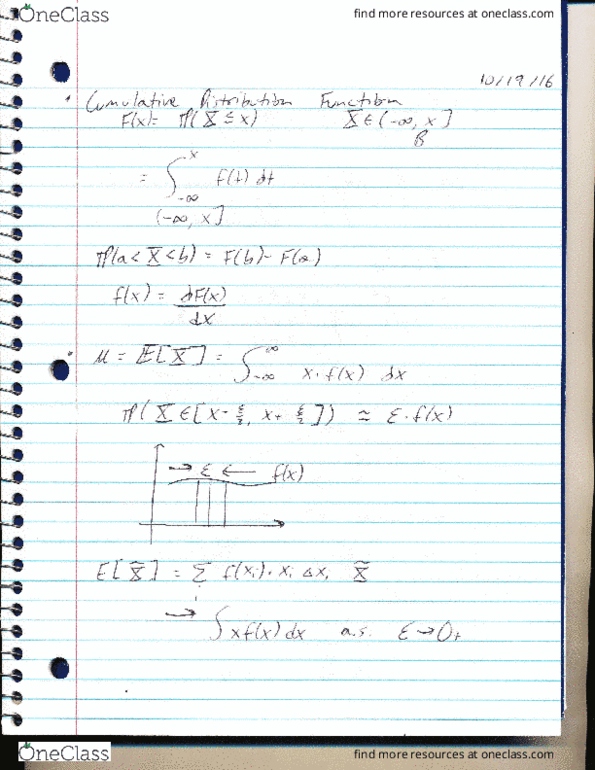 OneClass
find more resources at oneclass.com
10/19/16
Cumulative Distribution Function
F(x) = P(X ≤ x) X ∈ (-∞, x]
B
= ∫_{-∞}^{x} f(t) dt
(-∞, x]
P(a < X < b) = F(b) - F(a)
f(x) = dF(x)/dx
μ = E[X] = ∫_{-∞}^{∞} x·f(x) dx
P(X ∈ [x - ε/2, x + ε/2]) ≃ ε·f(x)
→ ε ← f(x)
E[X̃] = Σ f(xᵢ)·xᵢ Δxᵢ X̃
i
→ ∫xf(x)dx a.s. ε→0+
OneClass
find more resources at oneclass.com